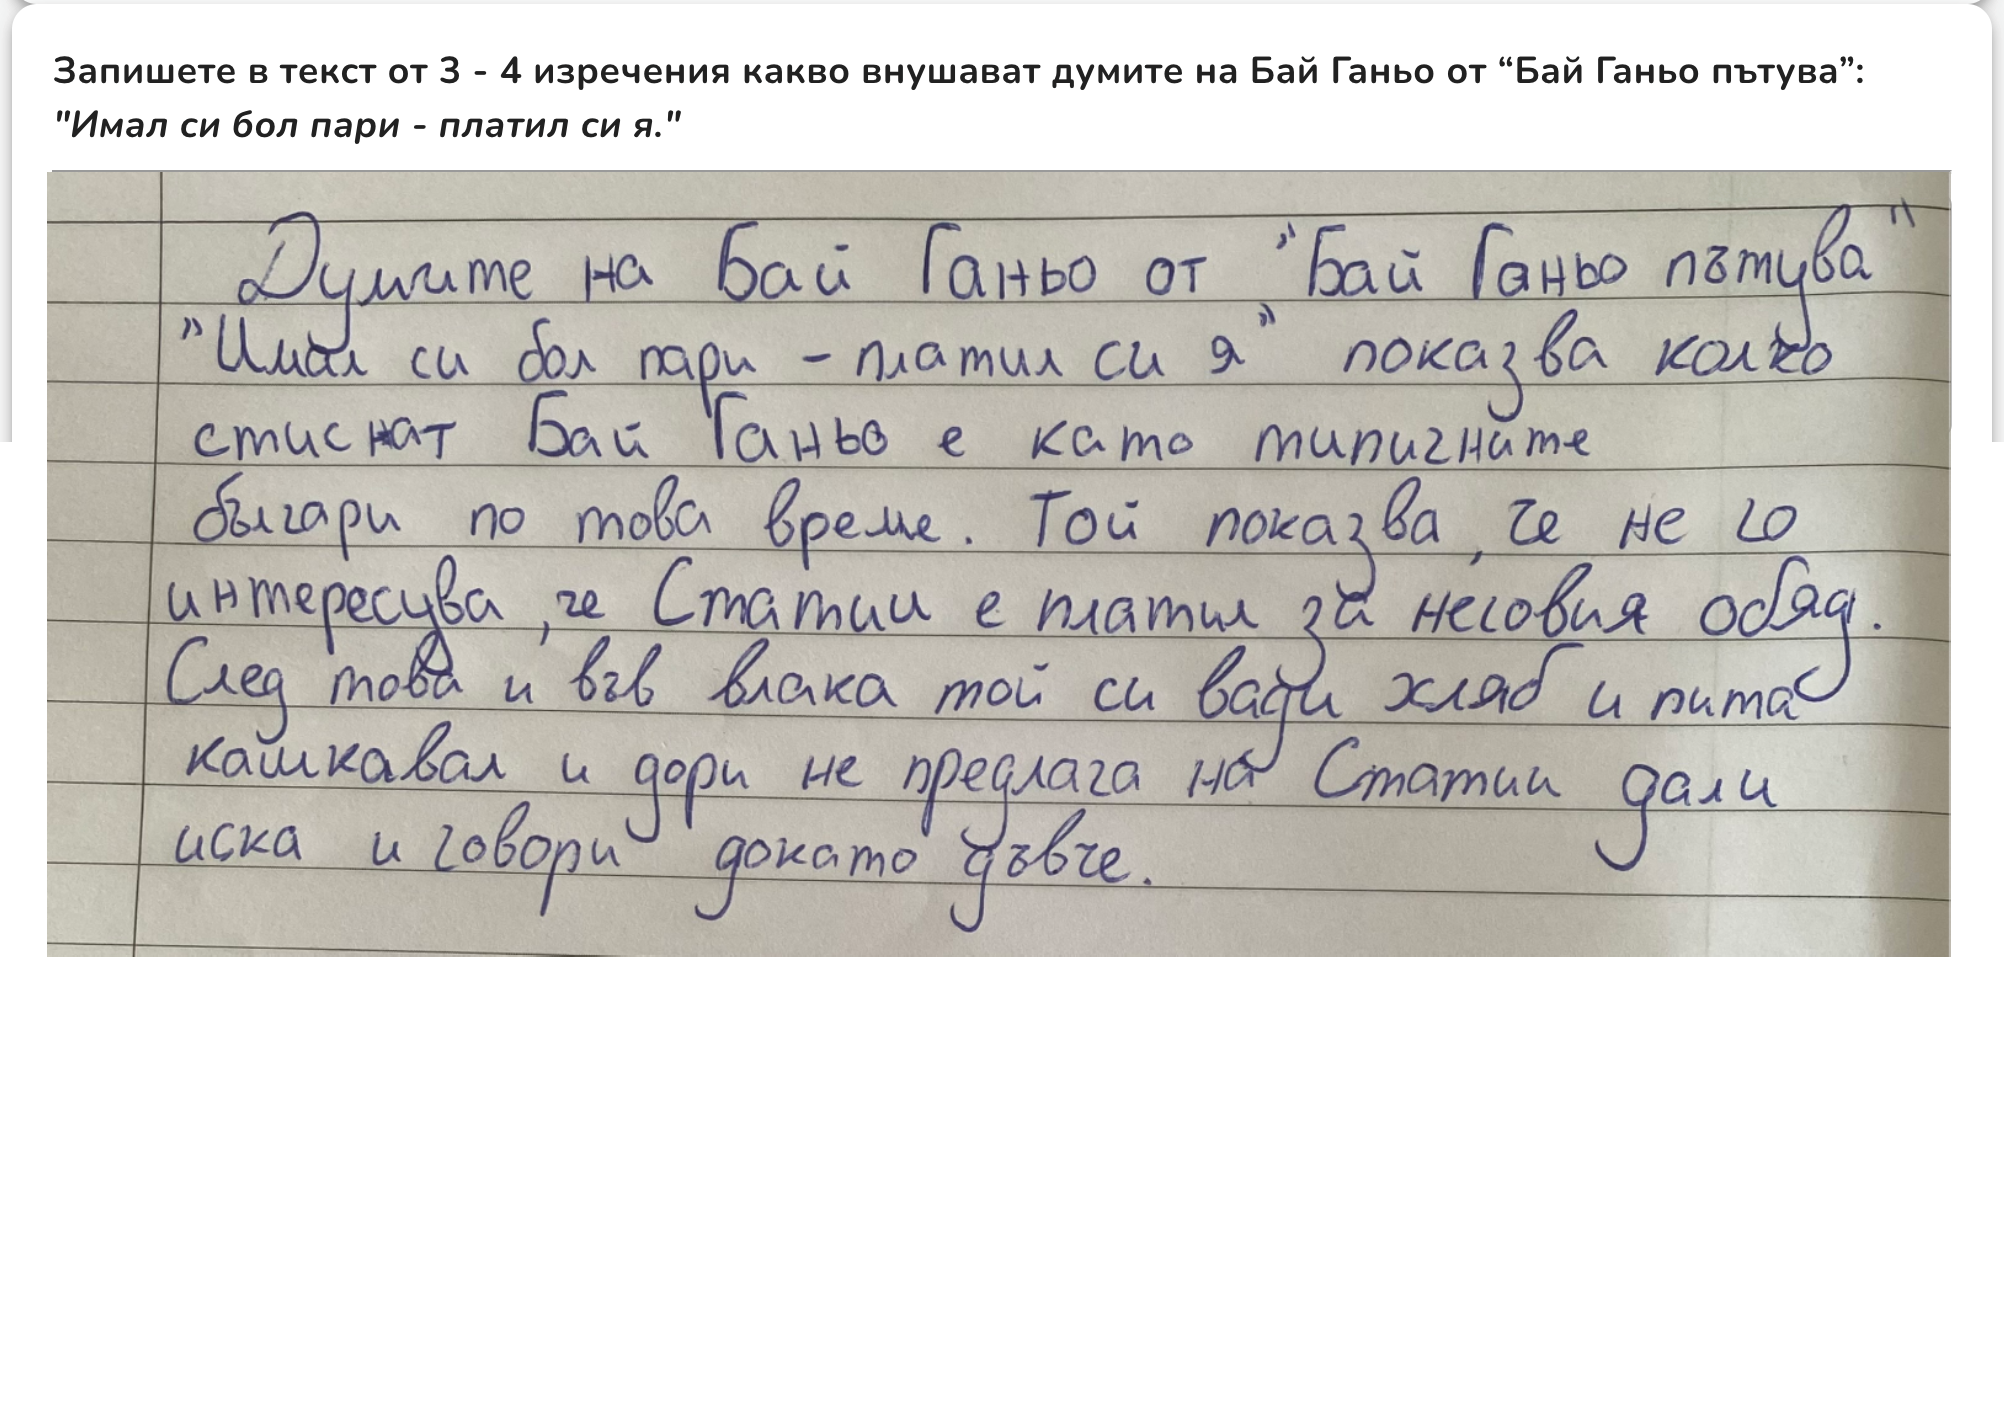 Запишете в текст от 3 - 4 изречения какво внушават думите на Бай Ганьо от “Бай Ганьо пътува”:
"Имал си бол пари - платил си я."
Думите на Бай Ганьо от "Бай Ганьо пътува"
"Имал си бол пари - платил си я" показва колко
стиснат Бай Ганьо е като типичните
българи по това време. Той показва, че не го
интересува, че Статии е платил за неговия обяд.
След това и във влака той си вади хляб и пита
кашкавал и дори не предлага на Статии дали
иска и говори докато дъвче.